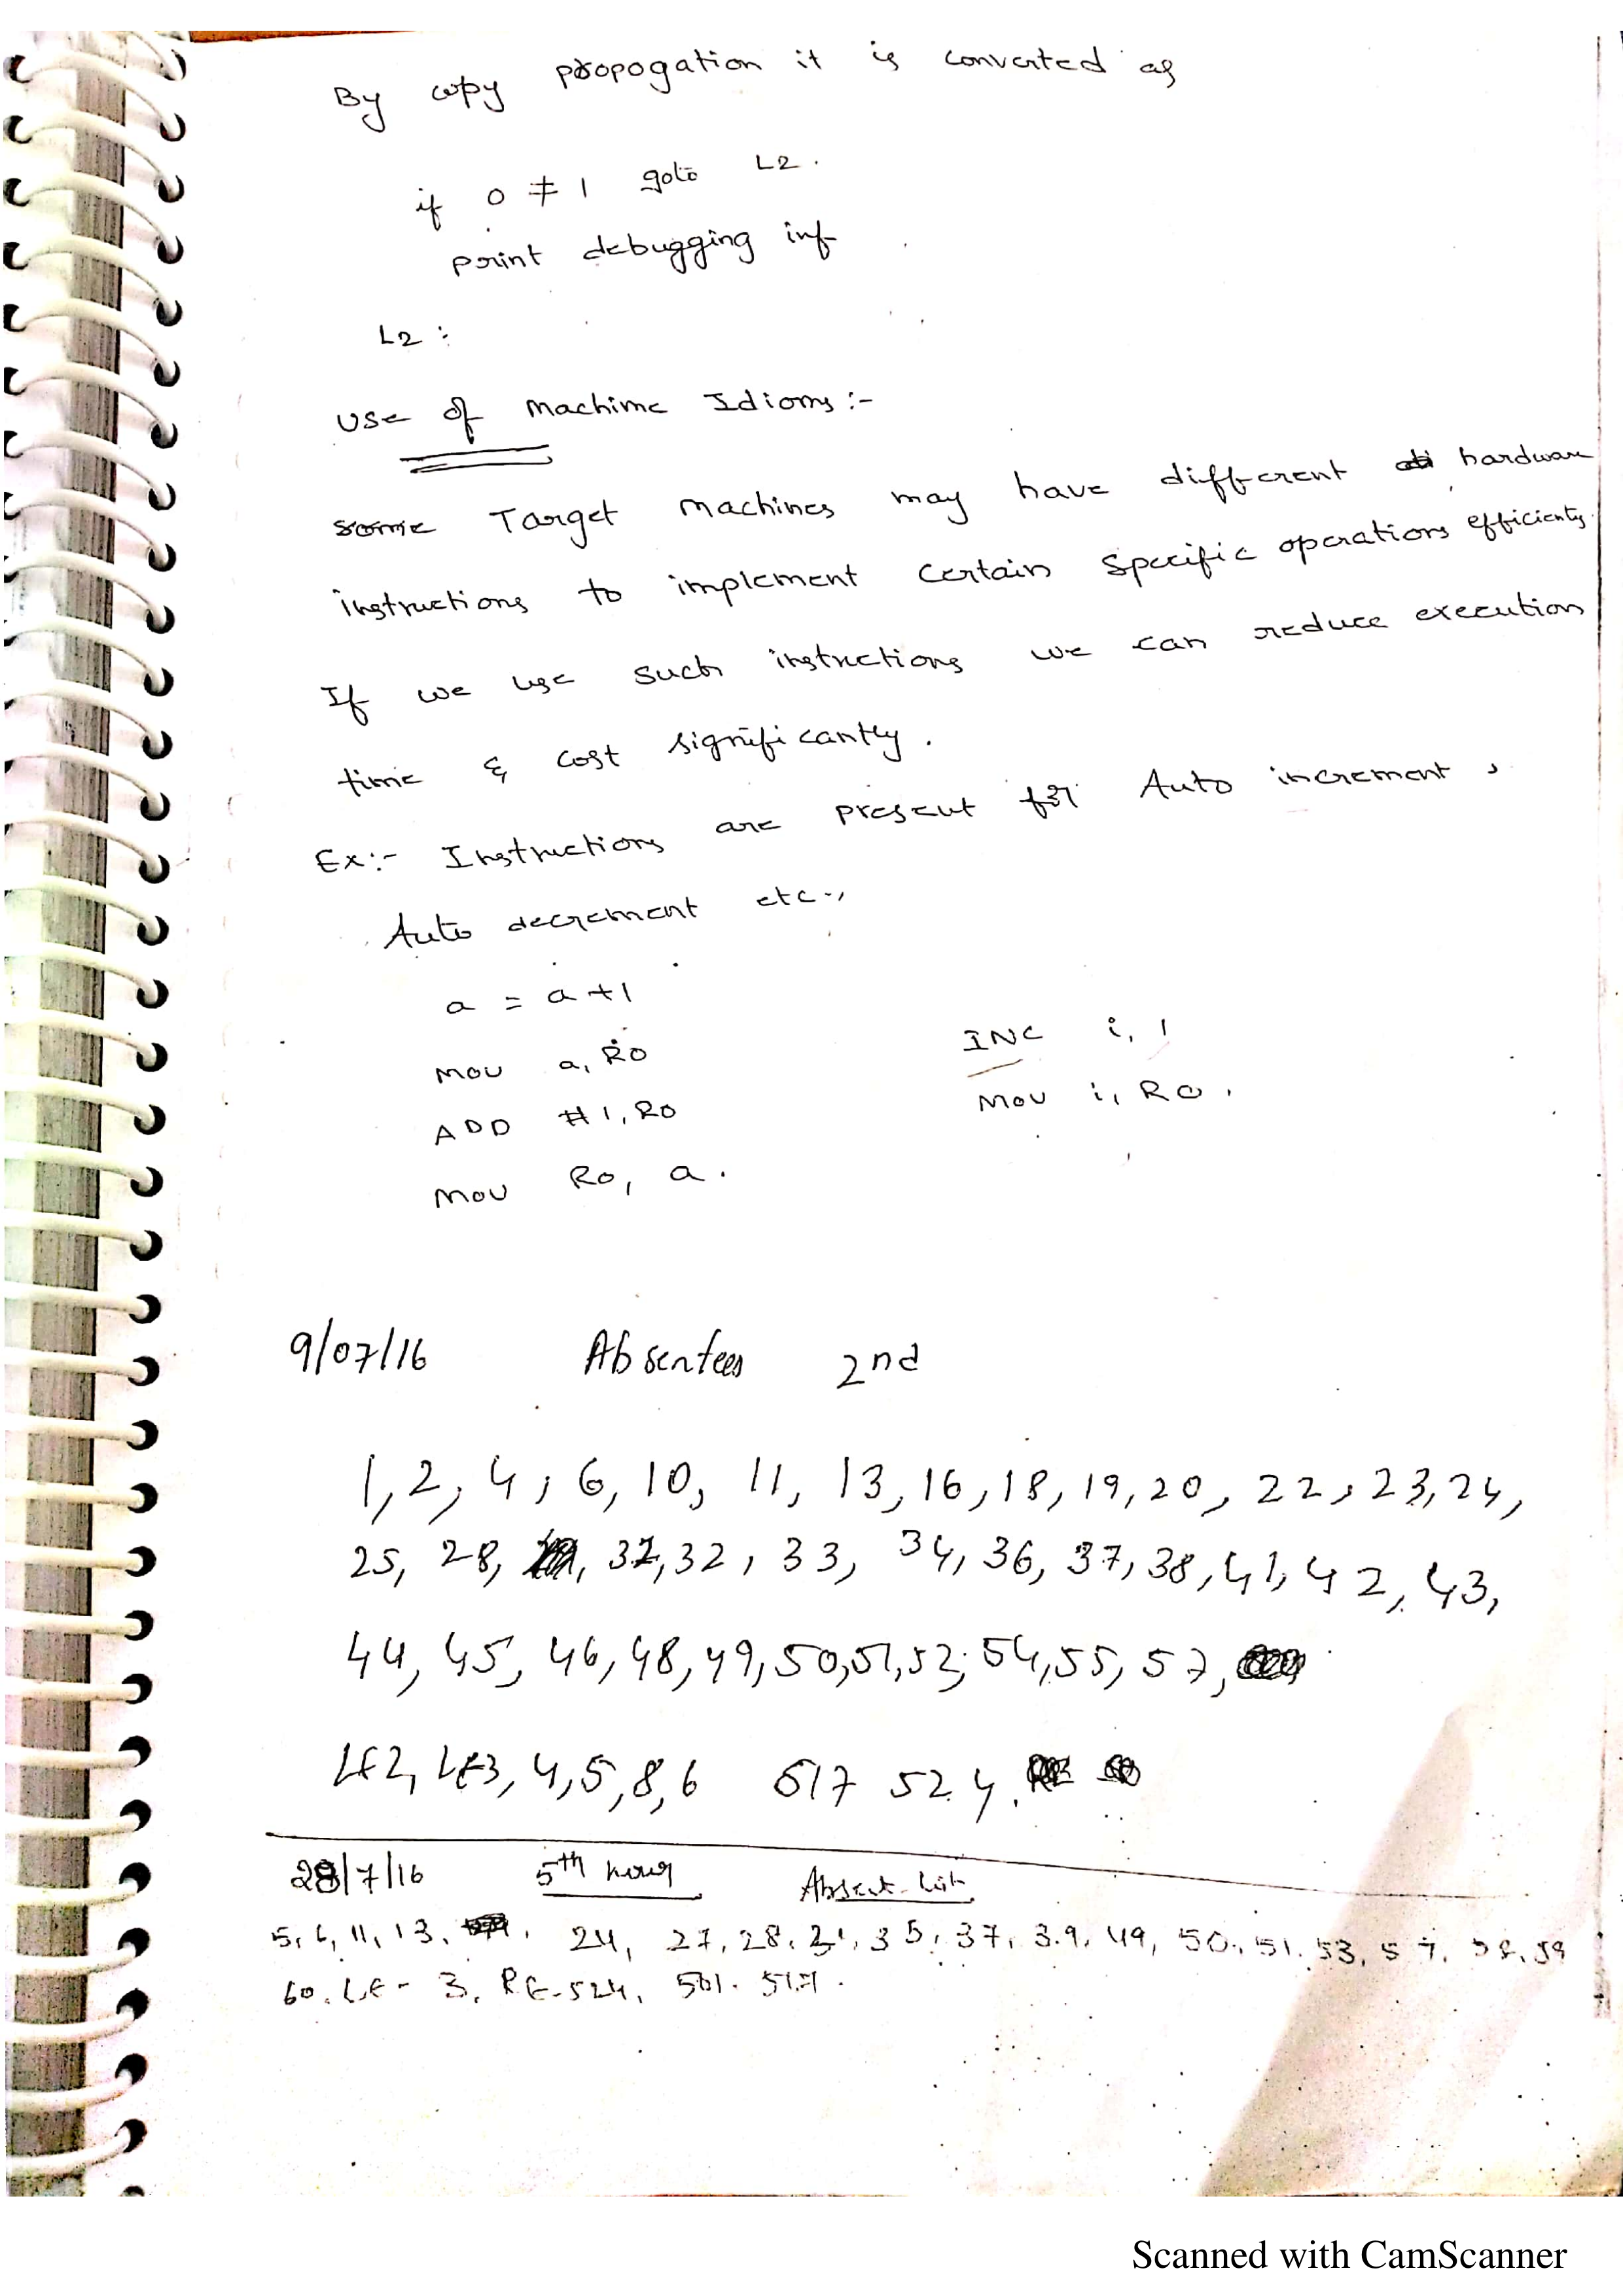 By copy propogation it is converted as
if 0 ≠ 1 goto L2.
print debugging inf
L2 :
use of Machine Idioms :-
some Target Machines may have different hardware
instructions to implement certain specific operations efficiently.
If we use such instructions we can reduce execution
time & cost significantly.
Ex:- Instructions are present for Auto increment,
Auto decrement etc.,
a = a+1
MOV a, R0
ADD #1, R0
MOV R0, a.
INC i, 1
MOV i, R0.
9/07/16 Absentees 2nd
1, 2, 4, 6, 10, 11, 13, 16, 18, 19, 20, 22, 23, 24,
25, 28, 32, 33, 34, 36, 37, 38, 41, 42, 43,
44, 45, 46, 48, 49, 50, 51, 52, 54, 55, 57,
LE2, LE3, 4, 5, 8, 6 517 524.
28/7/16 5th hour Absent List
5, 6, 11, 13, 24, 27, 28, 35, 37, 39, 49, 50, 51, 53, 57, 58, 59
60, LE-3, RE-524, 501. 517.
Scanned with CamScanner